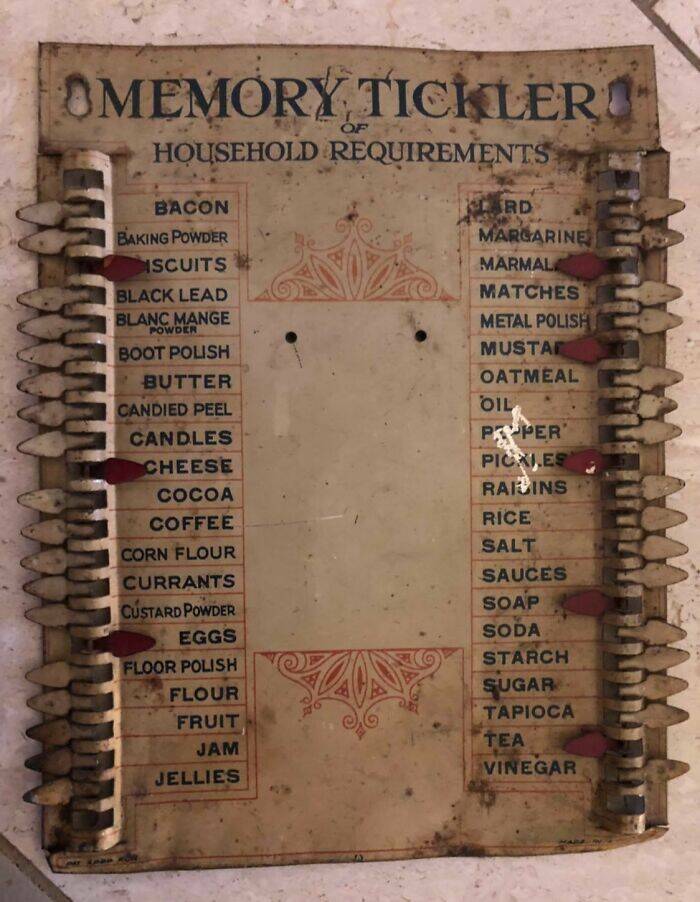 MEMORY TICKLER
OF
HOUSEHOLD REQUIREMENTS
BACON
BAKING POWDER
ISCUITS
BLACK LEAD
BLANC MANGE
POWDER
BOOT POLISH
BUTTER
CANDIED PEEL
CANDLES
CHEESE
COCOA
COFFEE
CORN FLOUR
CURRANTS
CUSTARD POWDER
EGGS
FLOOR POLISH
FLOUR
FRUIT
JAM
JELLIES
LARD
MARGARINE
MARMAL
MATCHES
METAL POLISH
MUSTA
OATMEAL
OIL
PEPPER
PICKLES
RAISINS
RICE
SALT
SAUCES
SOAP
SODA
STARCH
SUGAR
TAPIOCA
TEA
VINEGAR
PAT. APPD. FOR
MADE IN